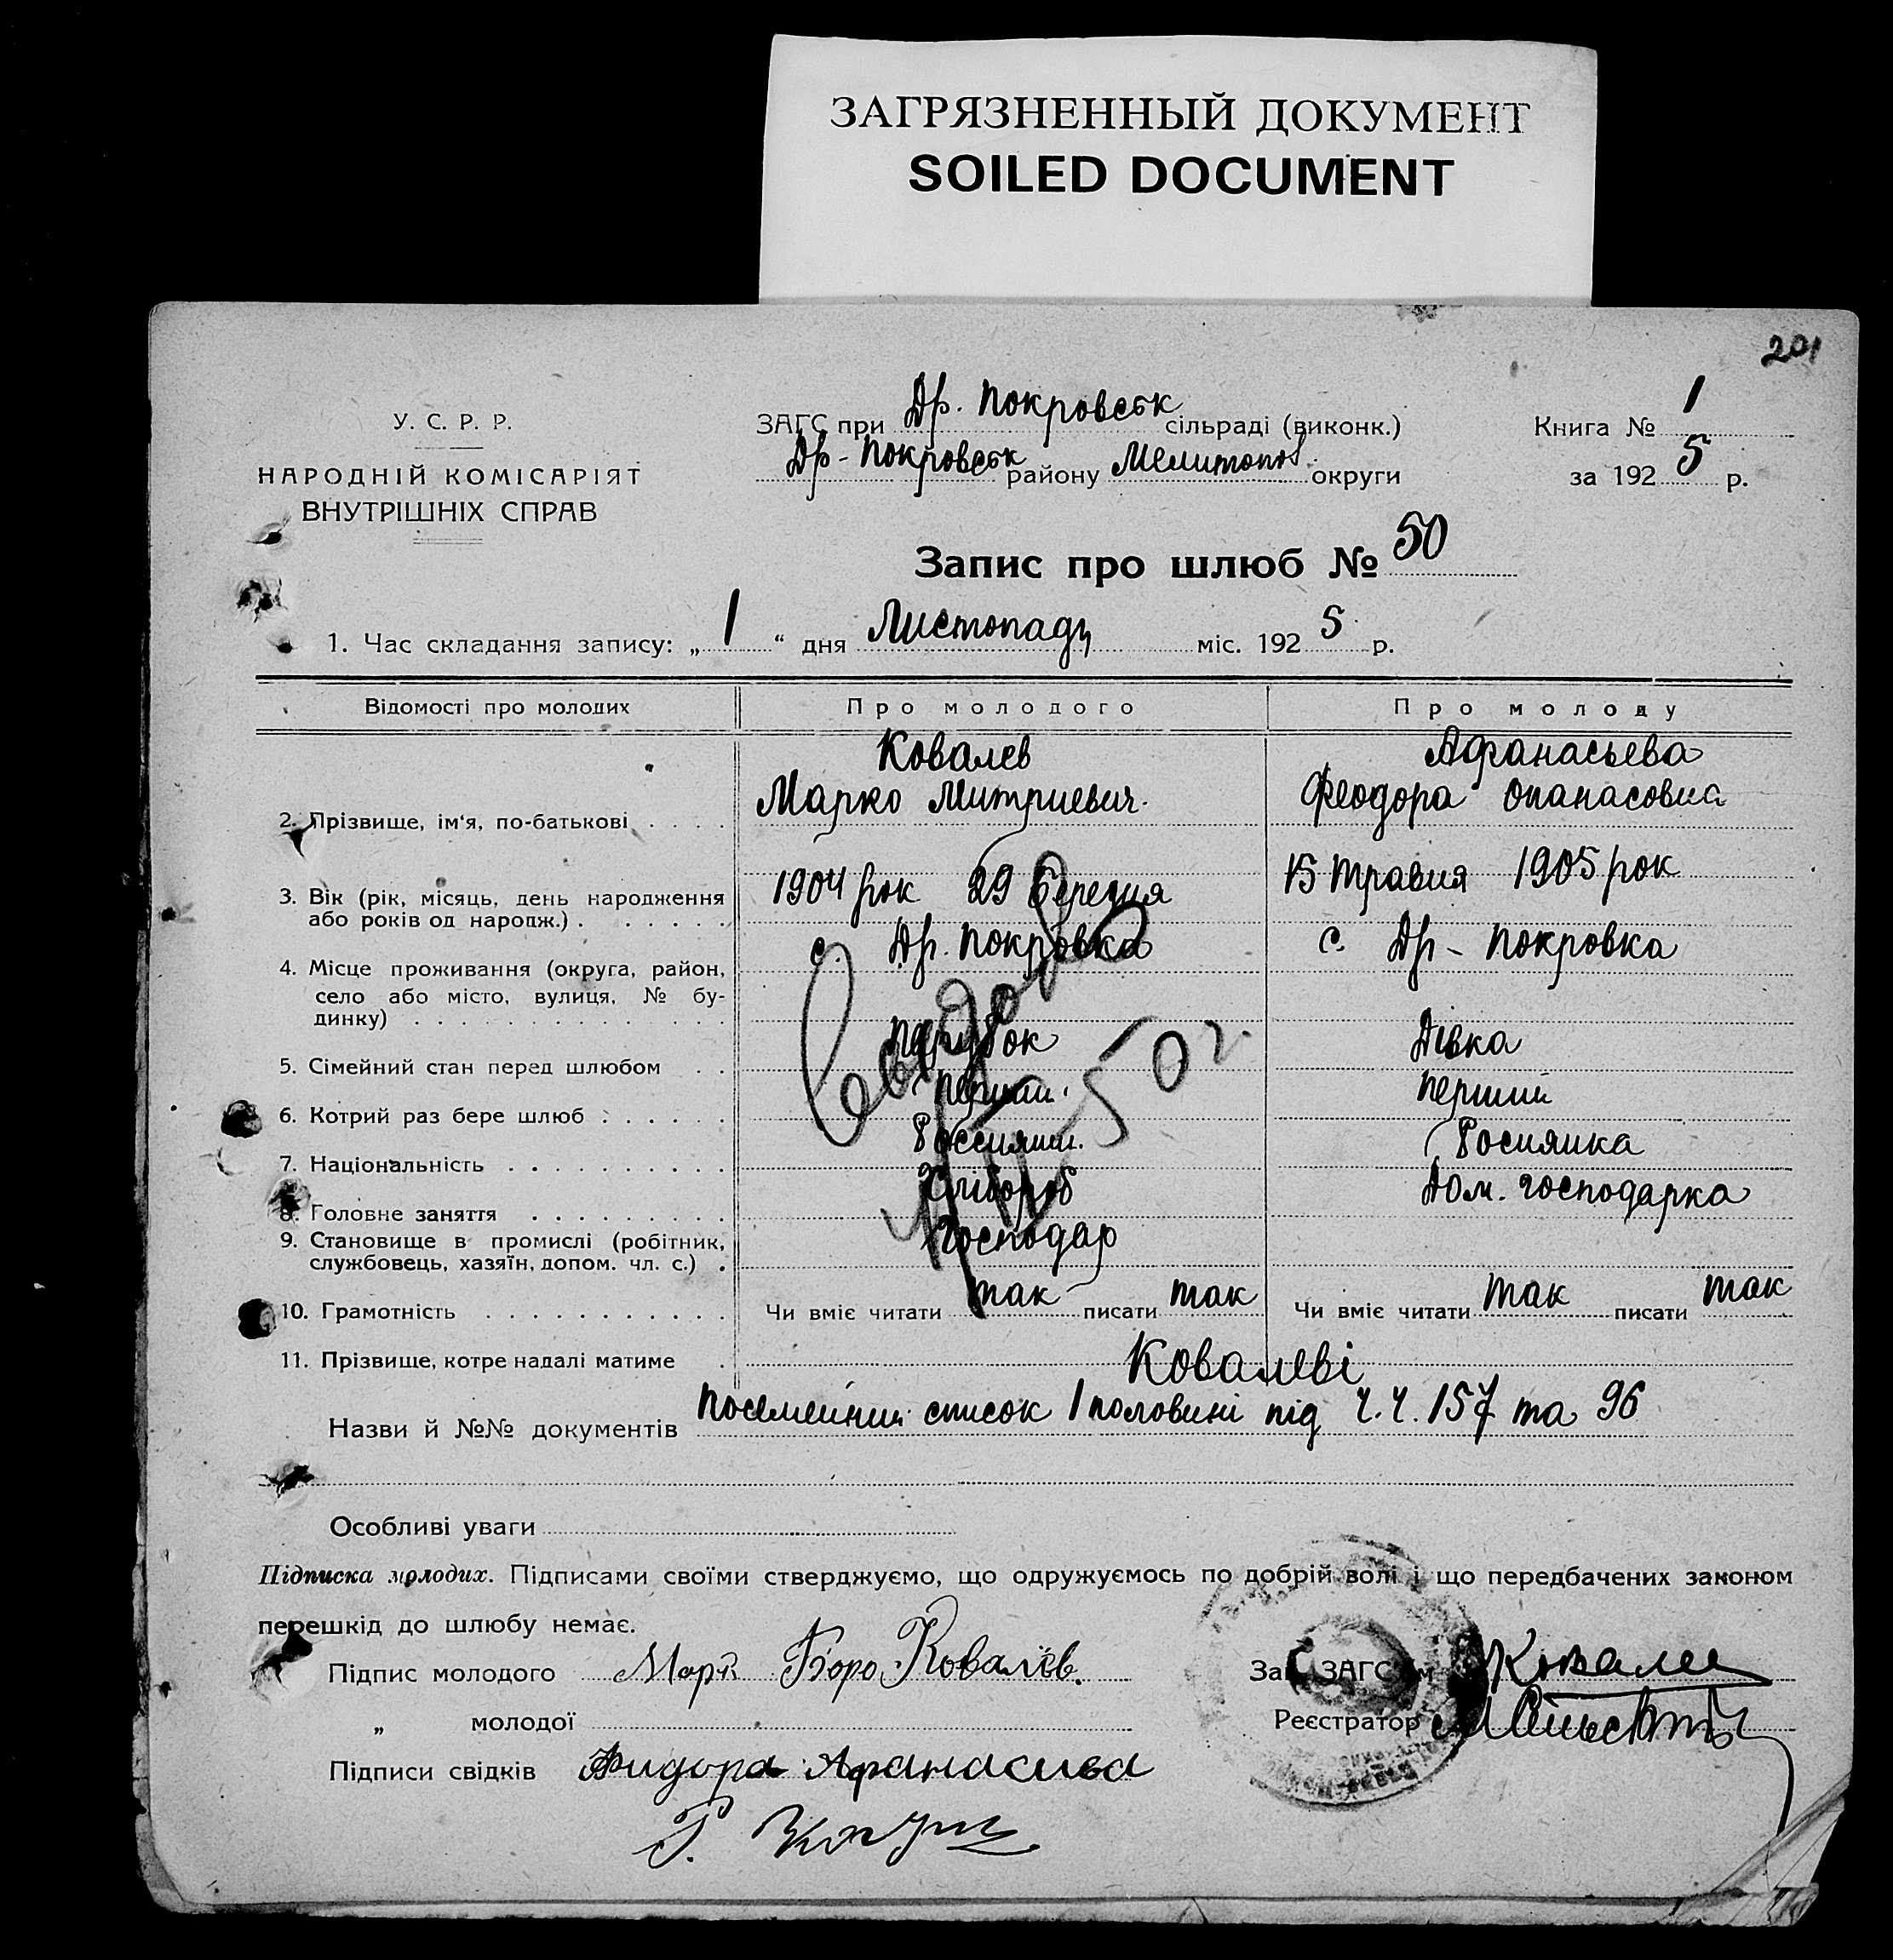 ЗАГРЯЗНЕННЫЙ ДОКУМЕНТ
SOILED DOCUMENT
201
У. С. Р. Р.
НАРОДНІЙ КОМІСАРІЯТ
ВНУТРІШНІХ СПРАВ
ЗАГС при Др. Покровськ сільраді (виконк.)
Др-Покровськ району Мелитопол. округи
Книга № 1
за 1925 р.
Запис про шлюб № 50
1. Час складання запису: „1“ дня Листопаду міс. 1925 р.
Відомості про молодих Про молодого Про молоду
Ковалев Афанасьева
2. Прізвище, ім'я, по-батькові Марко Митриевич. Феодора Опанасовна
3. Вік (рік, місяць, день народження 1904 рок 29 березня 15 травня 1905 рок
або років од народж.)
с. Др. Покровка с. Др-Покровка
4. Місце проживання (округа, район,
село або місто, вулиця, № бу-
динку)
5. Сімейний стан перед шлюбом Парубок Дівка
6. Котрий раз бере шлюб перший. перший
7. Національність Россиянин. Росиянка
8. Головне заняття Хлібороб Дом. господарка
9. Становище в промислі (робітник, Господар
службовець, хазяїн, допом. чл. с.)
10. Грамотність Чи вміє читати так писати так Чи вміє читати так писати так
11. Прізвище, котре надалі матиме Ковалеві
Назви й №№ документів посмейний список 1 половині під ч.ч. 157 та 96
Особливі уваги
Підписка молодих. Підписами своїми стверджуємо, що одружуємось по добрій волі і що передбачених законом
перешкід до шлюбу немає.
Підпис молодого Марк Ковалёв.
„ молодої
Зав. ЗАГС'ом
Реєстратор
Підписи свідків Фидора Афанасива